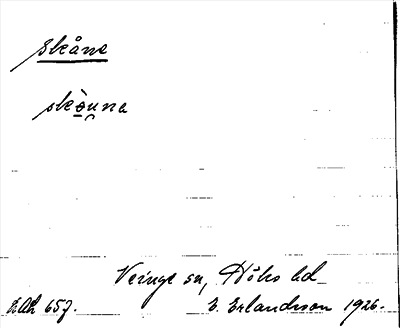 Skåne
skòu̯na
Veinge sn, Höks hd
E. Erlandsson 1926.